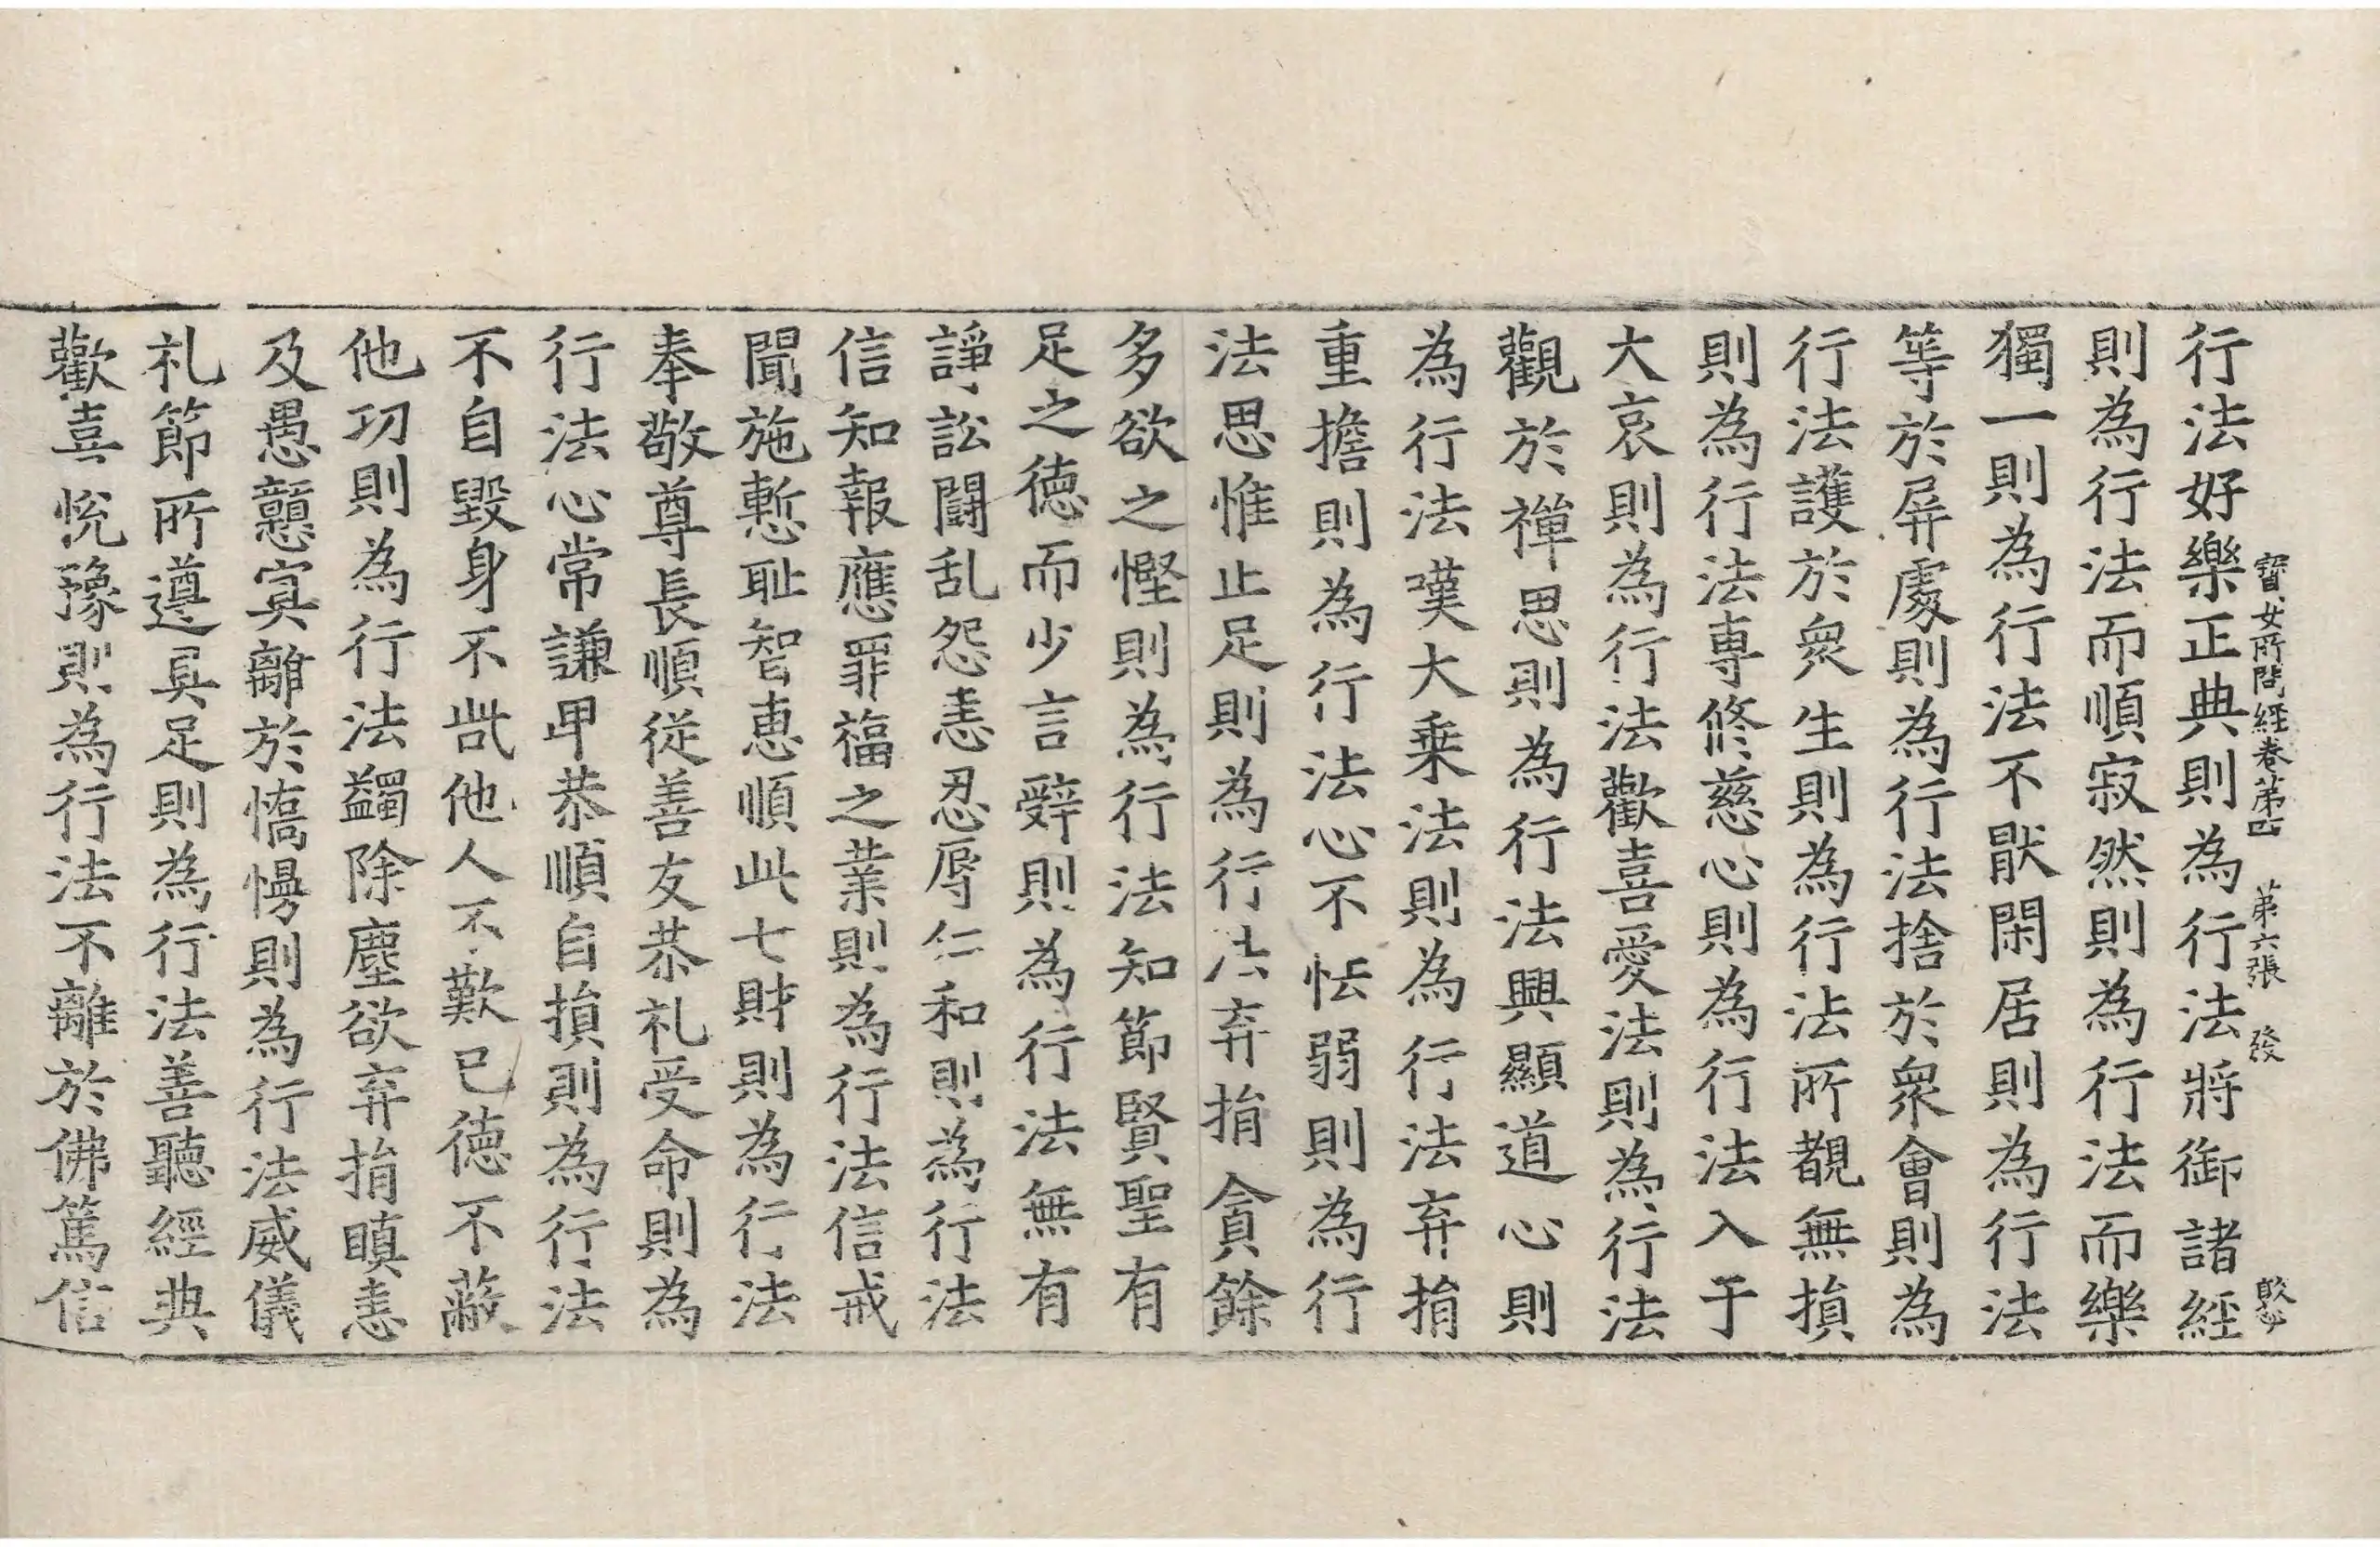 寶女所問經卷第四 第六張 發
行法好樂正典則為行法將御諸經
則為行法而順寂然則為行法而樂
獨一則為行法不猒閑居則為行法
等於屏處則為行法捨於衆會則為
行法護於衆生則為行法所覩無損
則為行法專修慈心則為行法入于
大哀則為行法歡喜愛法則為行法
觀於禪思則為行法興顯道心則
為行法嘆大乗法則為行法弃捐
重擔則為行法心不怯弱則為行
法思惟止足則為行法弃捐貪餘
多欲之慳則為行法知節賢聖有
足之德而少言辝則為行法無有
諍訟鬪乱怨恚忍辱仁和則為行法
信知報應罪福之業則為行法信戒
聞施慙耻智恵順此七財則為行法
奉敬尊長順從善友恭礼受命則為
行法心常謙卑恭順自損則為行法
不自毀身不呰他人不歎已德不蔽
他㓛則為行法蠲除塵欲弃捐瞋恚
及愚戇㝠離於憍慢則為行法威儀
礼節所遵具足則為行法善聽經典
歡喜恱豫則為行法不離於佛篤信